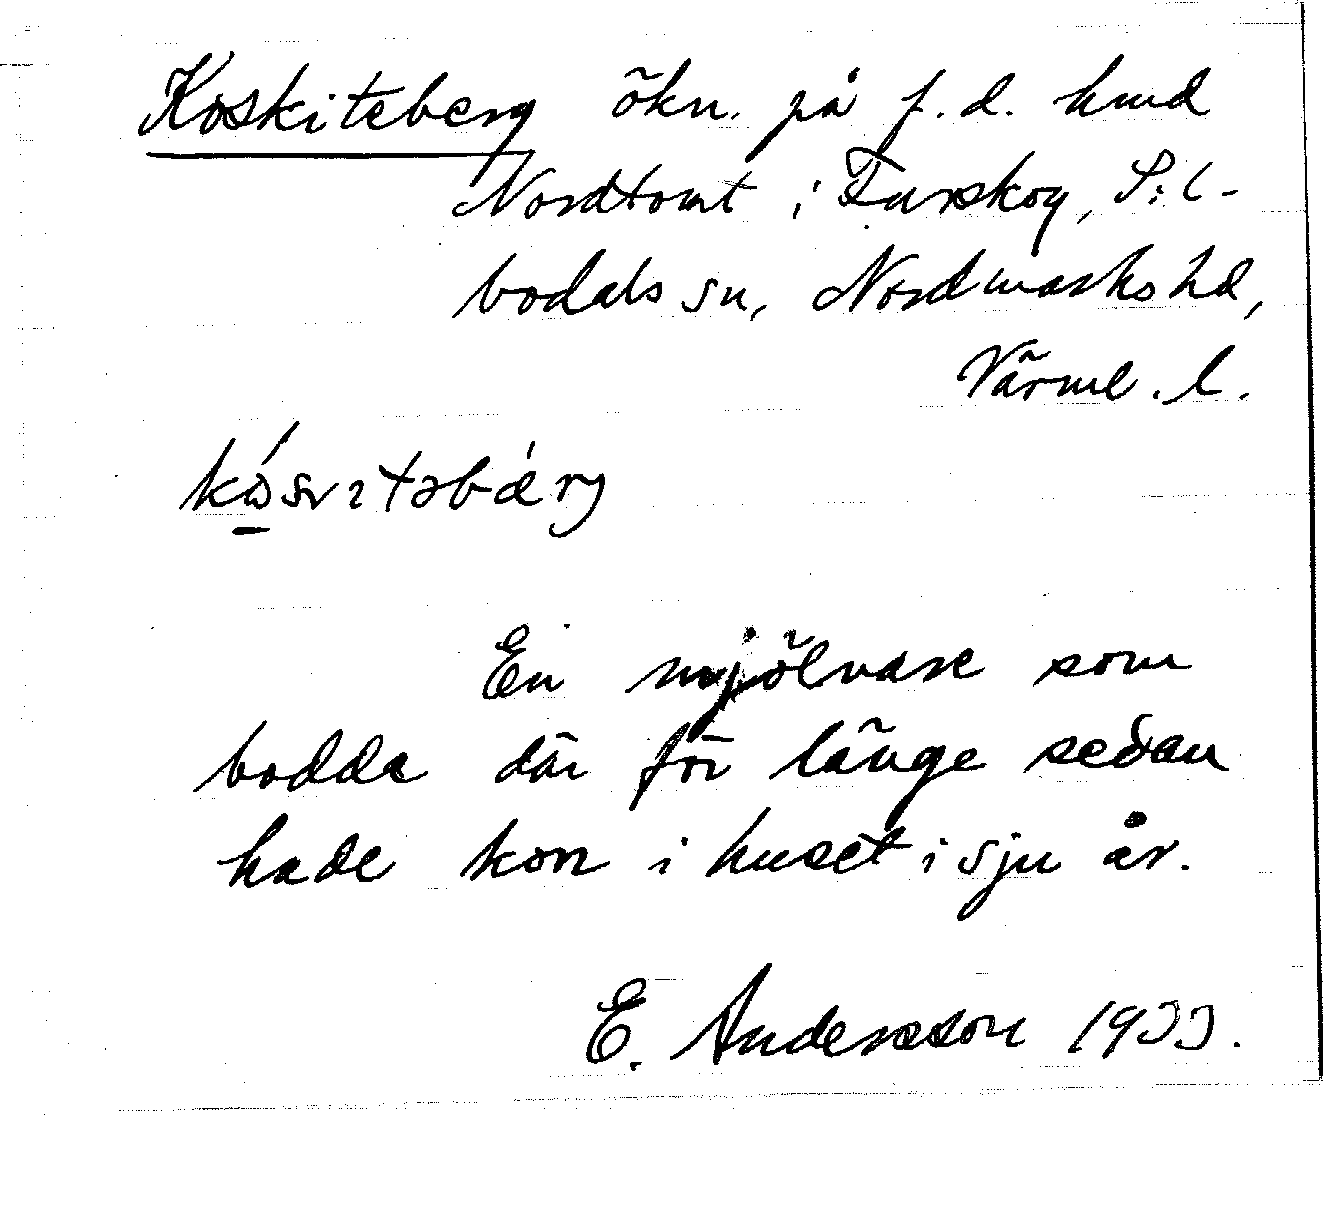 Koskiteberg ökn. på f.d. hmd
Nordtomt i Furskog, Sil-
bodals sn, Nordmarks hd,
Värml. l.
En mjölnare som
bodde där för länge sedan
hade kon i huset i sju år.
E. Andersson 1933.